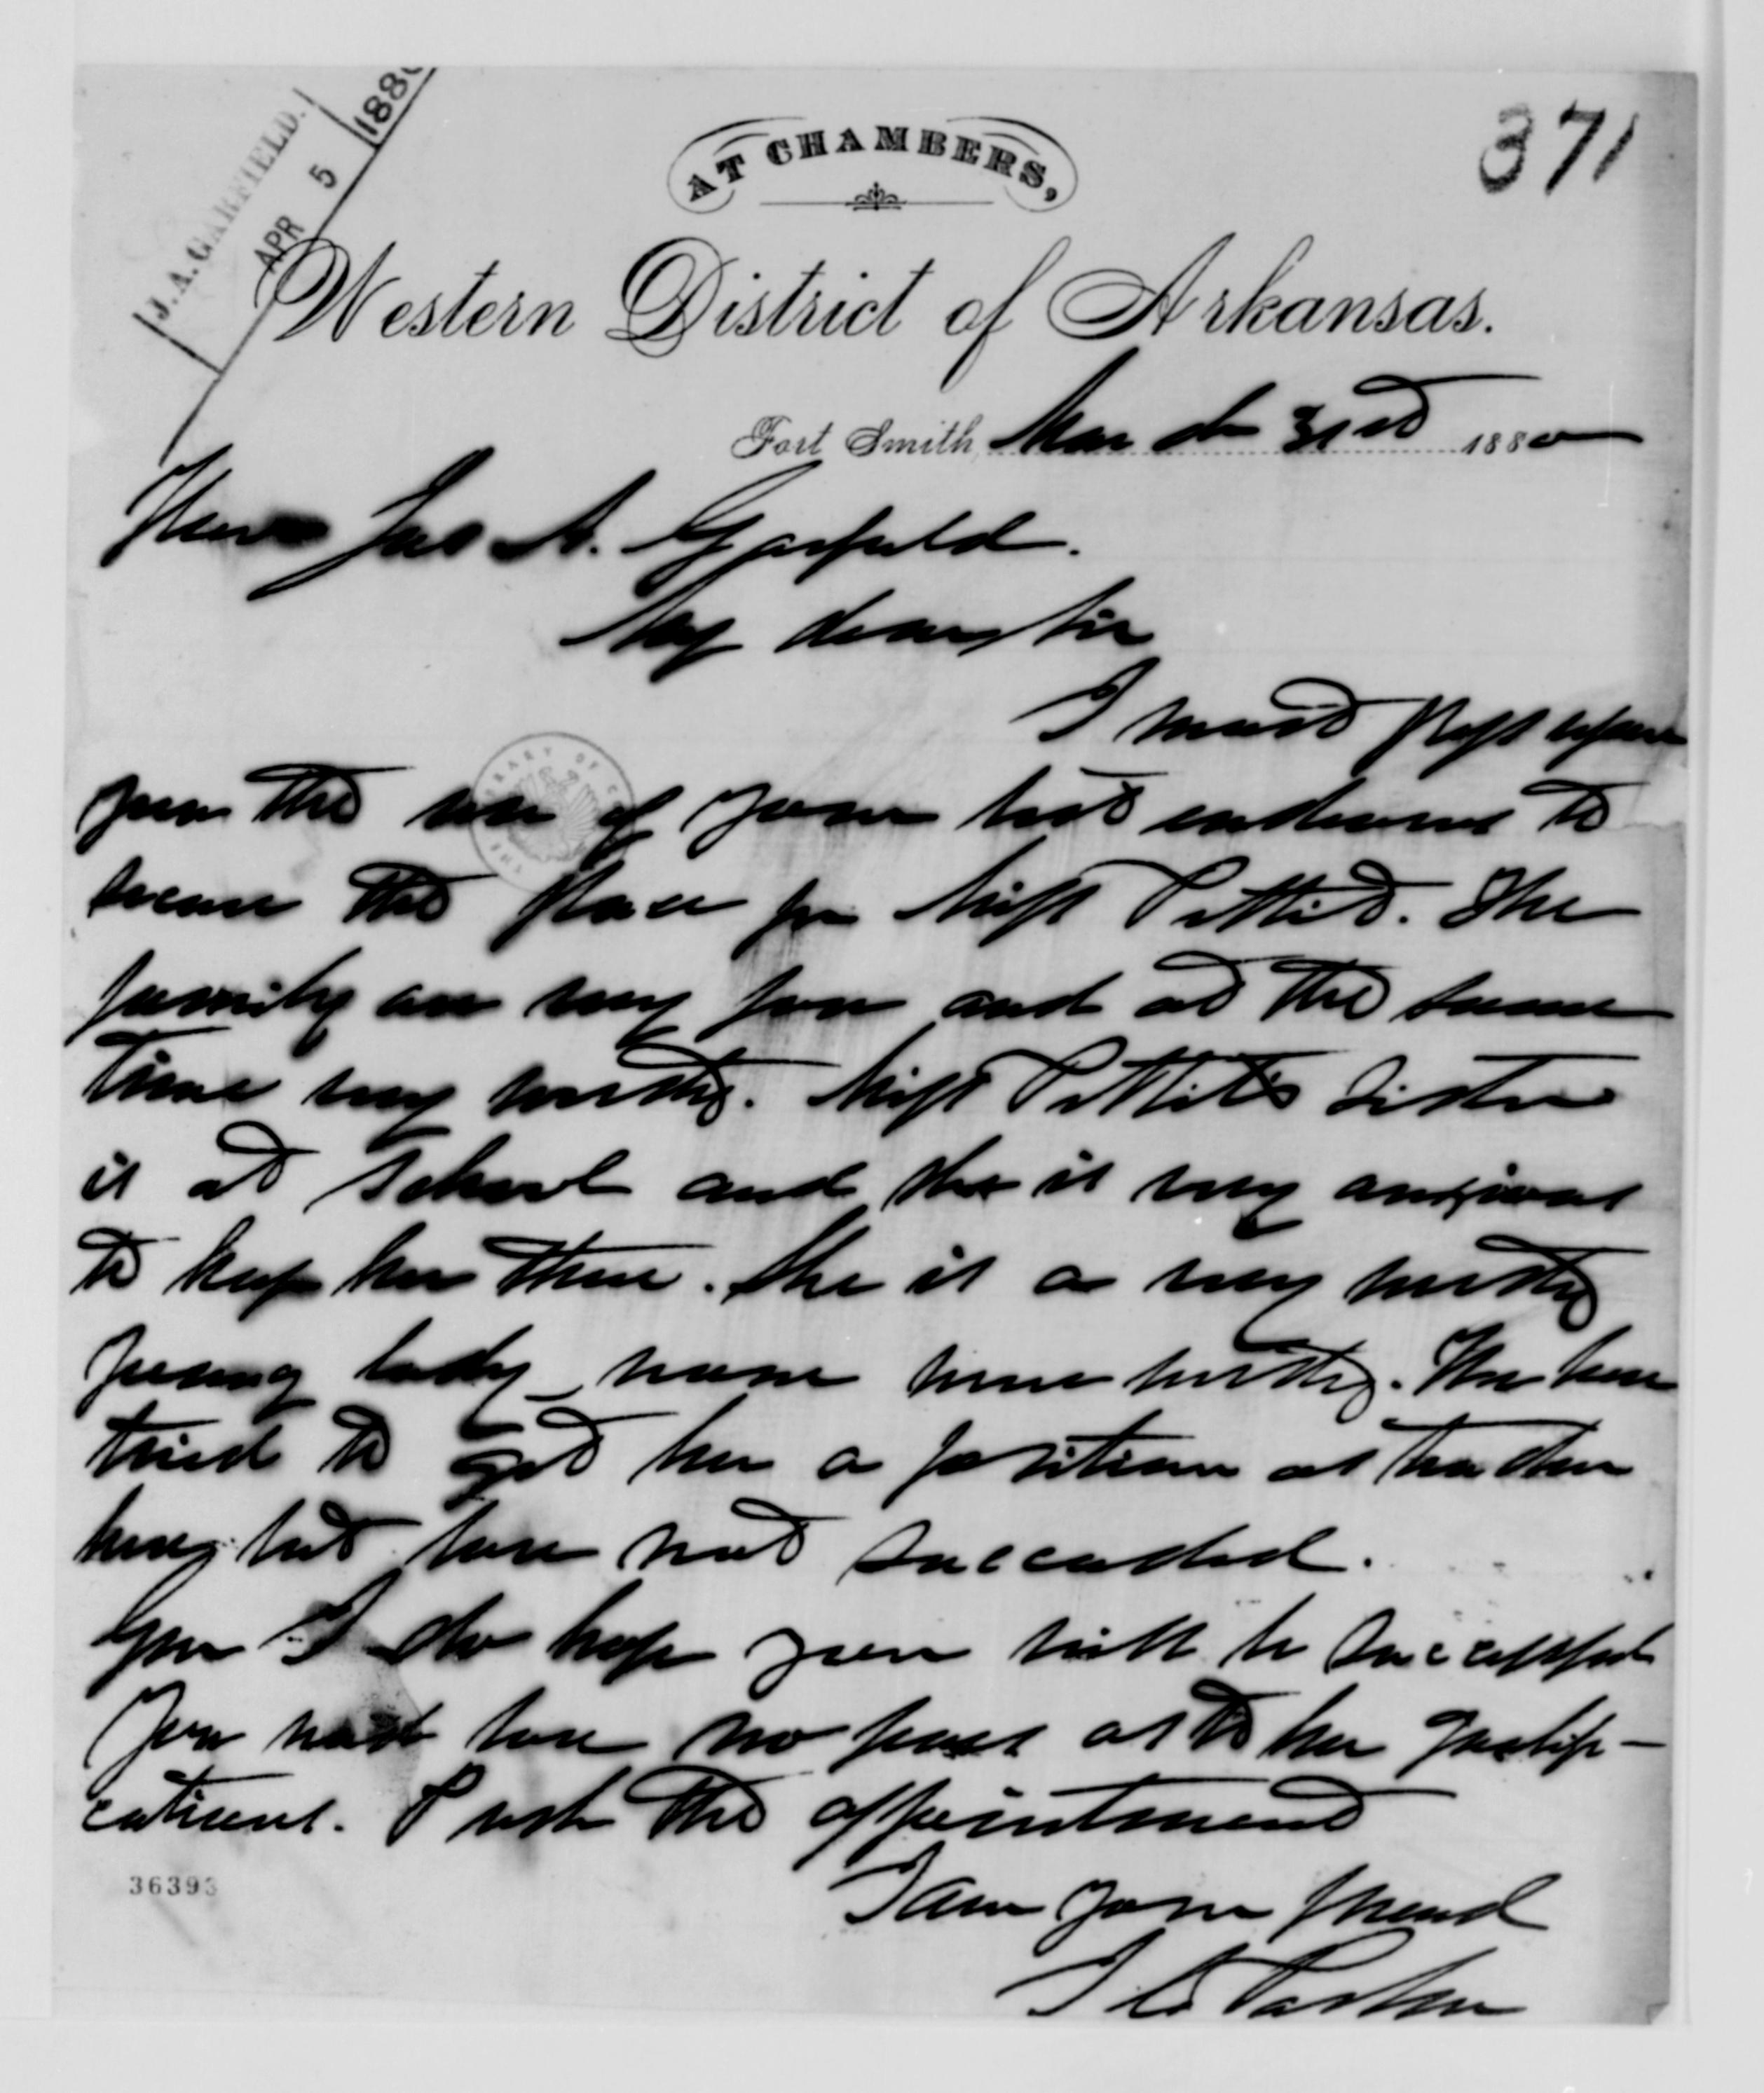 J. A. GARFIELD.
APR 5 1880
371
AT CHAMBERS,
Western District of Arkansas.
Fort Smith, March 31st 1880
Hon Jas A. Garfield.
My dear Sir
I must press upon
you the use of your best endeavors to
secure the place for Miss Pettit. The
family are very poor and at the same
time very worthy. Miss Pettit's sister
is at school and she is very anxious
to keep her there. She is a very worthy
young lady none more worthy. We have
tried to get her a position as teacher
here, but have not succeeded.
Gen I do hope you will be successful
You need have no fears as to her qualifi-
cations. Push the appointment
36393
I am your friend
I C Parker